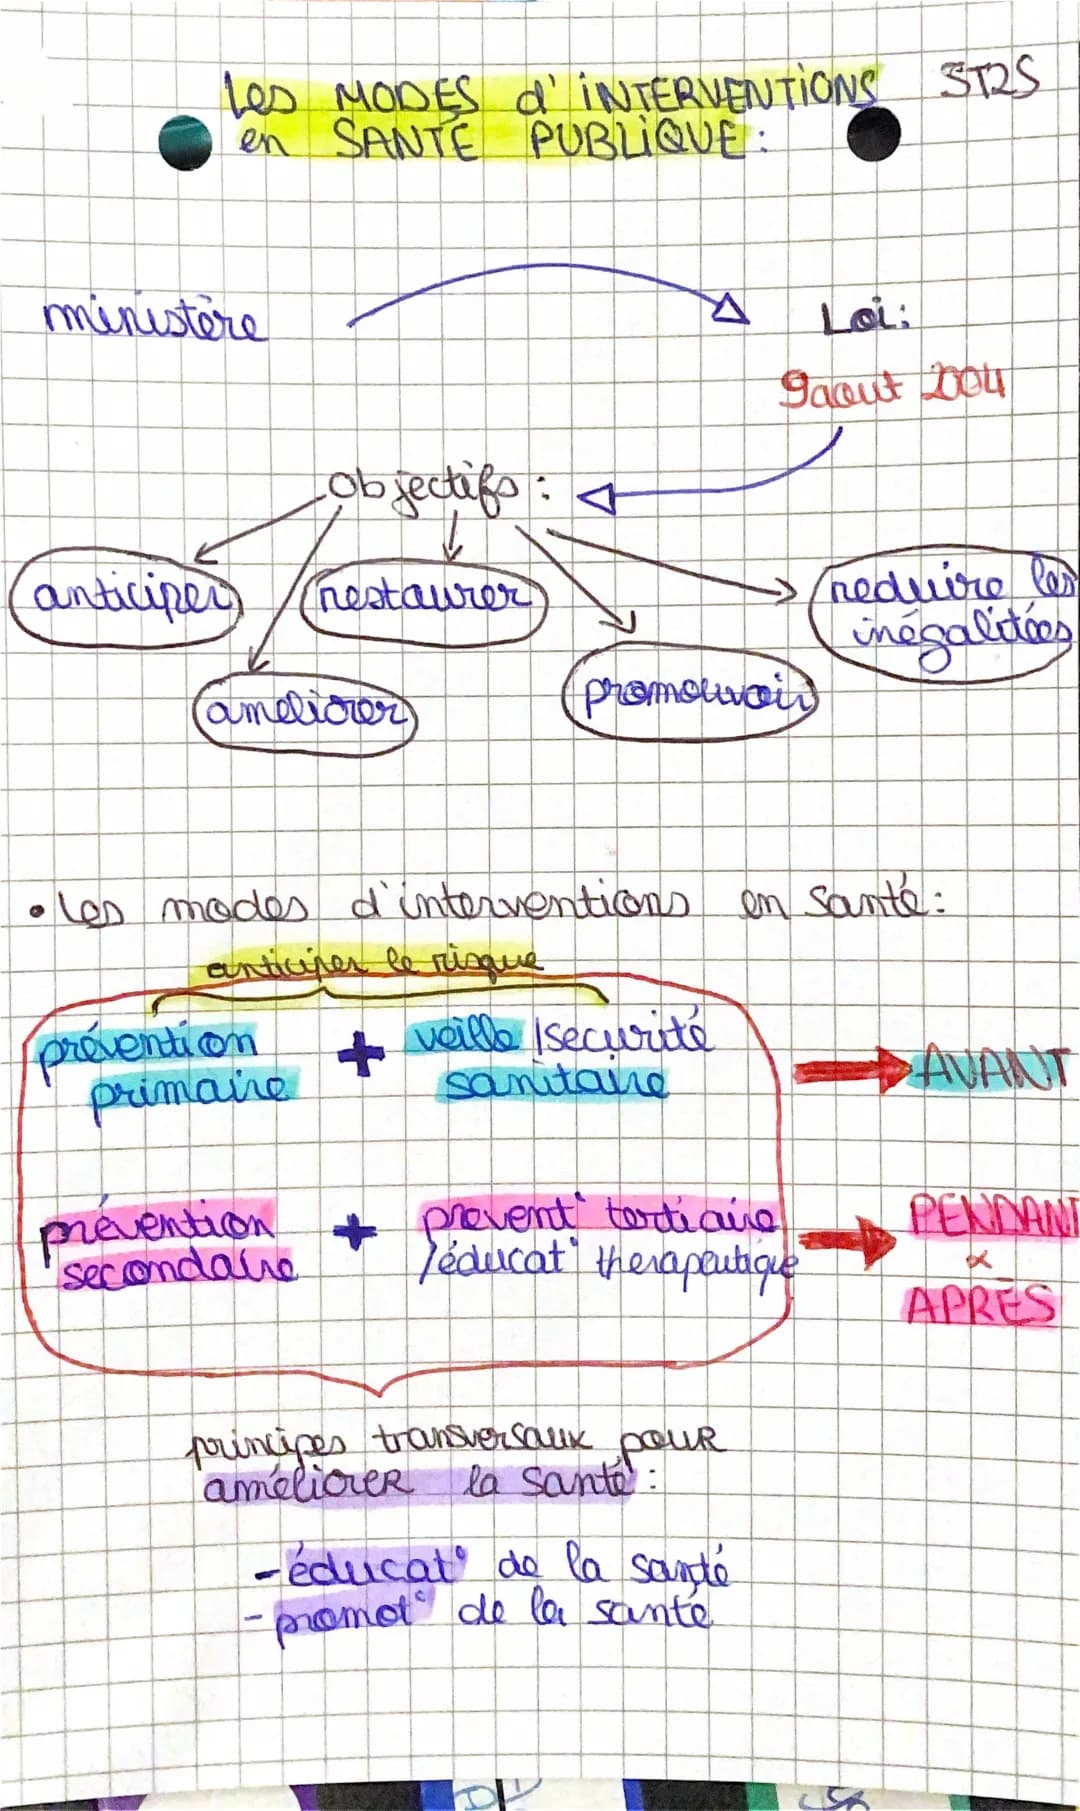 Les MODES d'iNTERVENTiONS ST2S
en SANTÉ PUBLiQUE :
ministère
Loi :
9 aout 2004
Objectifs :
anticiper
restaurer
reduire les
inégalitées
améliorer
promouvoir
• Les modes d'interventions en Santé :
anticiper le risque
prévention + veille /securité
primaire sanitaire
AVANT
prévention + prevent° tertiaire
secondaire /éducat° therapeutique
PENDANT
&
APRÈS
principes transversaux pour
améliorer la Santé :
- éducat° de la santé
- promot° de la santé